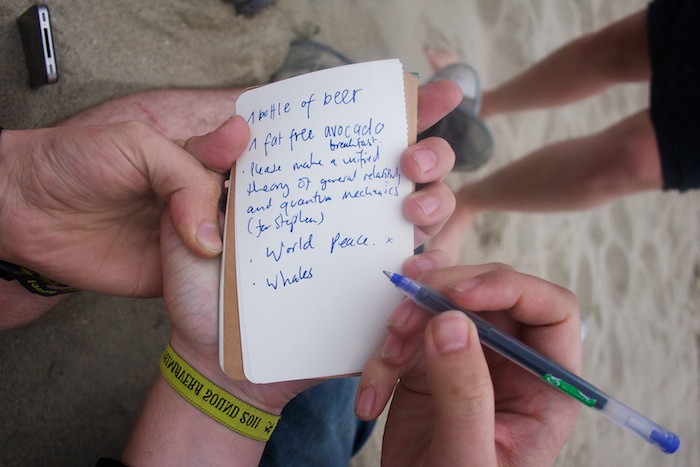 1 bottle of beer
1 fat free avocado
breakfast.
· Please make a unified
theory of general relativity
and quantum mechanics
(for Stephen)
· World Peace. x
· Whales
PRIMAVERA SOUND 2011